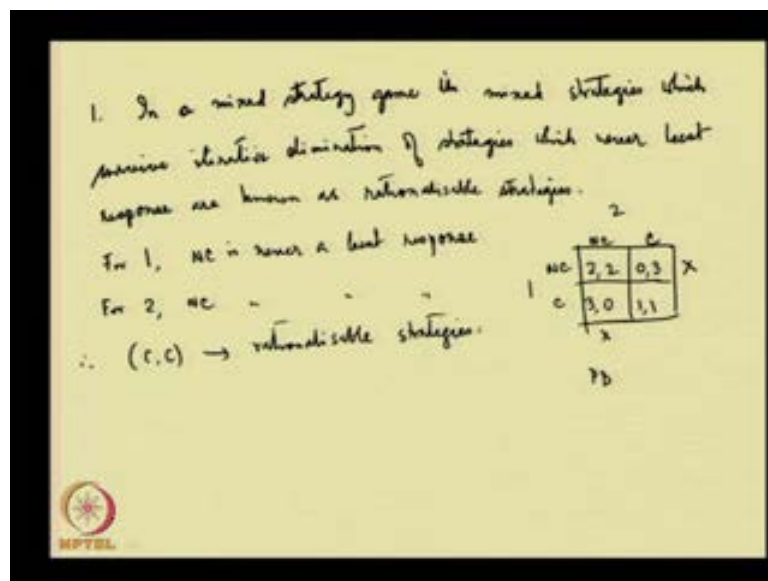 1. In a mixed strategy game the mixed strategies which
survive iterative elimination of strategies which never best
response are known as rationalisable strategies.
2
NC C
For 1, NC is never a best response
NC 2,2 0,3 X
1
For 2, NC " " "
C 3,0 1,1
∴ (C,C) → rationalisable strategies.
X
PD
NPTEL